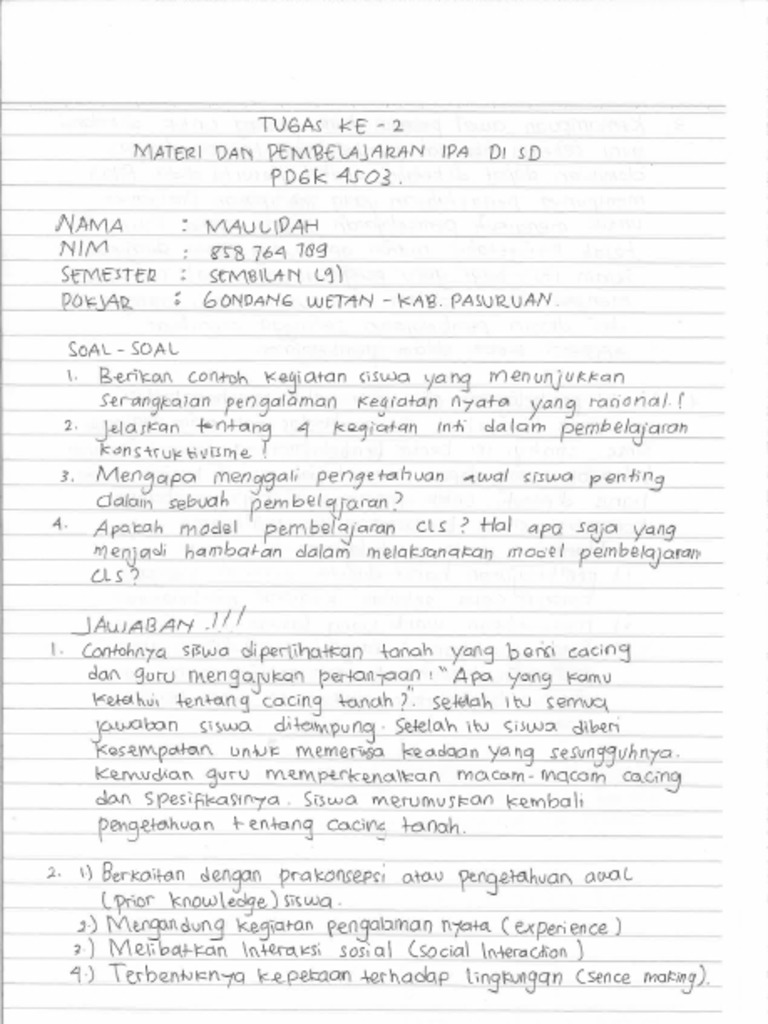 TUGAS KE - 2
MATERI DAN PEMBELAJARAN IPA DI SD
PDGK 4503.
NAMA : MAULIDAH
NIM : 858 764 789
SEMESTER : SEMBILAN (9)
POKJAR : GONDANG WETAN - KAB. PASURUAN.
SOAL - SOAL
1. Berikan contoh kegiatan siswa yang menunjukkan
serangkaian pengalaman kegiatan nyata yang rasional.!
2. Jelaskan tentang 4 kegiatan inti dalam pembelajaran
konstruktivisme !
3. Mengapa menggali pengetahuan awal siswa penting
dalam sebuah pembelajaran?
4. Apakah model pembelajaran CLS? Hal apa saja yang
menjadi hambatan dalam melaksanakan model pembelajaran
CLS?
JAWABAN .!!!
1. Contohnya siswa diperlihatkan tanah yang berisi cacing
dan guru mengajukan pertanyaan : "Apa yang kamu
ketahui tentang cacing tanah?". Setelah itu semua
jawaban siswa ditampung. Setelah itu siswa diberi
kesempatan untuk memeriksa keadaan yang sesungguhnya.
Kemudian guru memperkenalkan macam-macam cacing
dan spesifikasinya. Siswa merumuskan kembali
pengetahuan tentang cacing tanah.
2. 1) Berkaitan dengan prakonsepsi atau pengetahuan awal
(prior knowledge) siswa.
2.) Mengandung kegiatan pengalaman nyata (experience)
3.) Melibatkan Interaksi sosial (social Interaction)
4.) Terbentuknya kepekaan terhadap lingkungan (sence making).